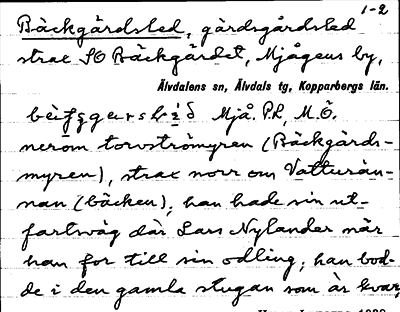 1-2
Bäckgårdsled, gärdsgårdsled
strax SO Bäckgårdet, Mjågens by,
Älvdalens sn, Älvdals tg, Kopparbergs län.
Mjå. P.L, M.Ö.
nerom torvströmyren (Bäckgårds-
myren), strax norr om Vatturän-
nan (bäcken); han hade sin ut-
fartväg där Lars Nylander när
han for till sin odling; han bod-
de i den gamla stugan som är kvar,